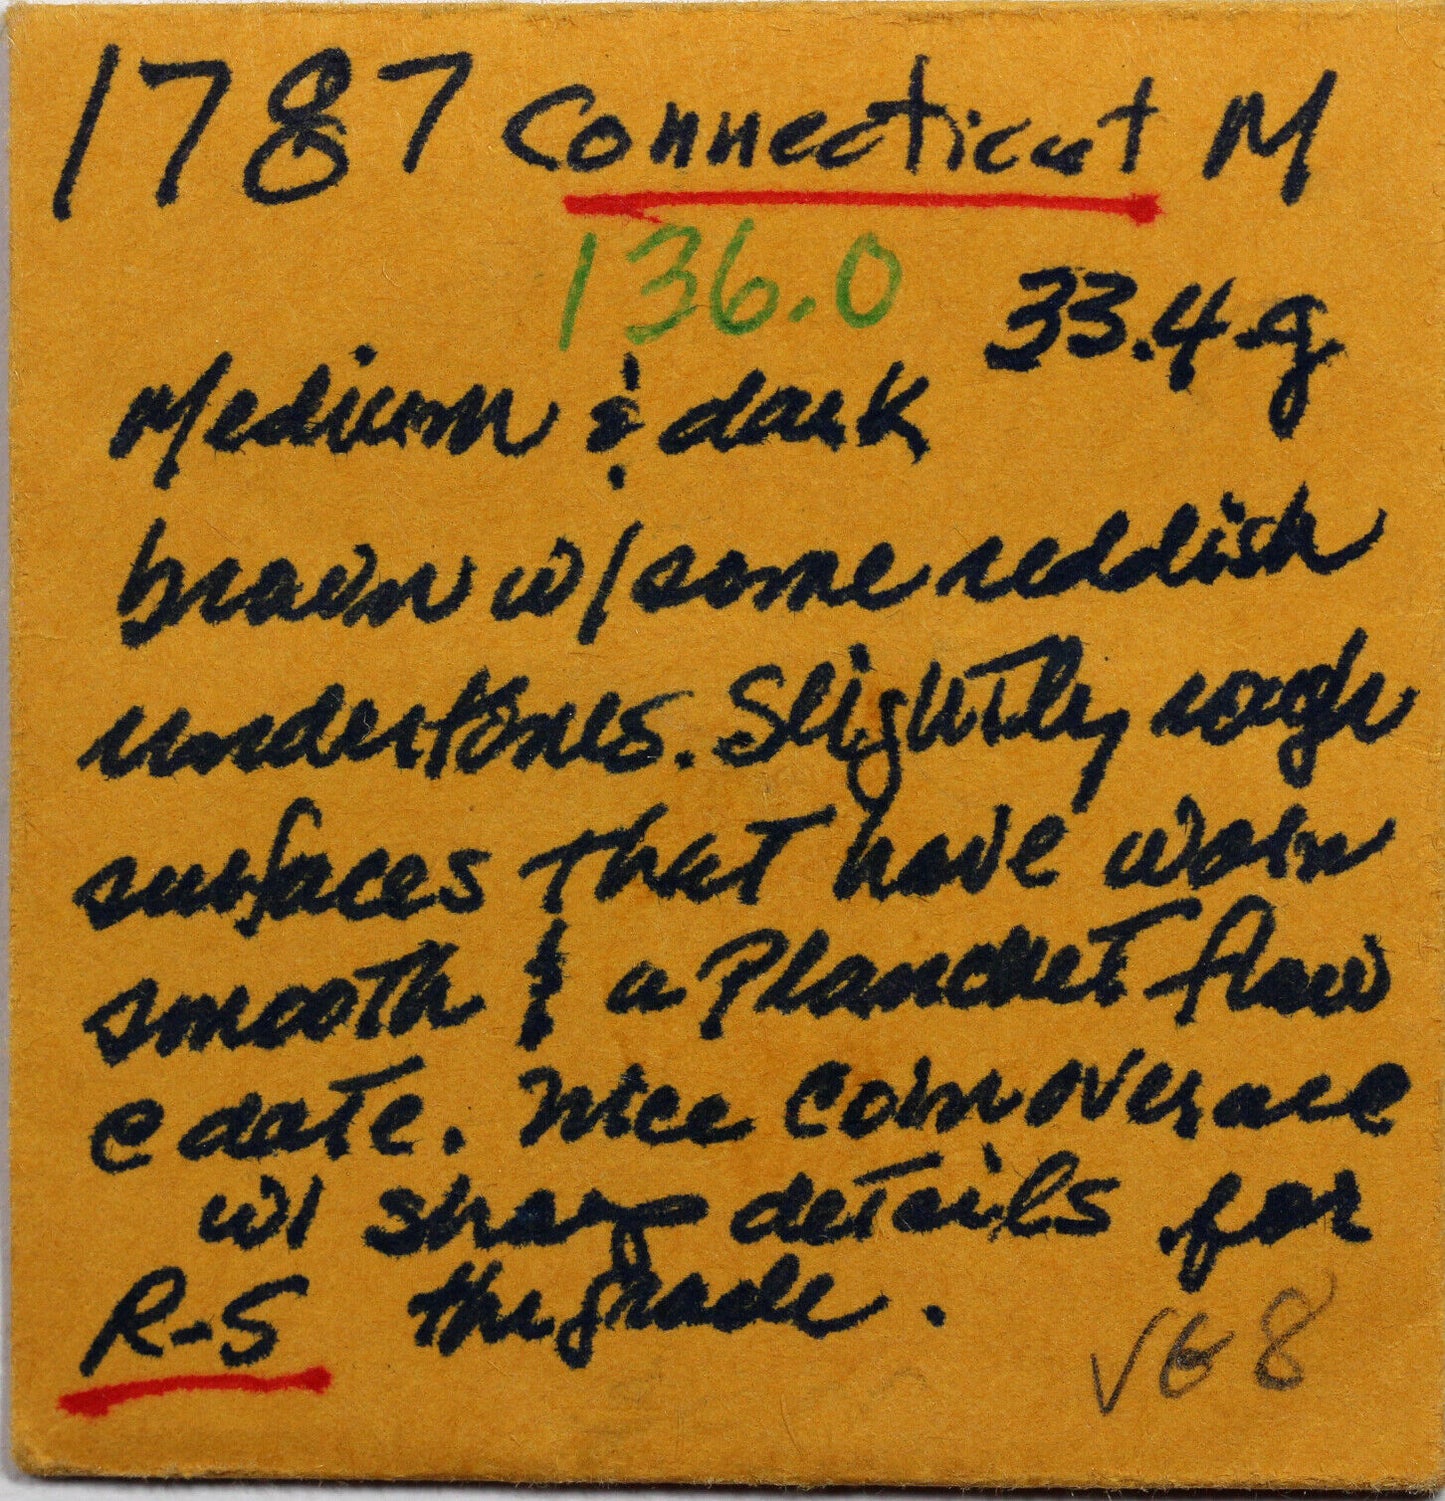 1787 Connecticut M
136.0
33.4.g
Medium & dark
brown w/some reddish
undertones. Slightly rough
surfaces that have worn
smooth & a Planchet flaw
@ date. Nice coin overall
w/ sharp details for
R-5 the grade.
VG 8